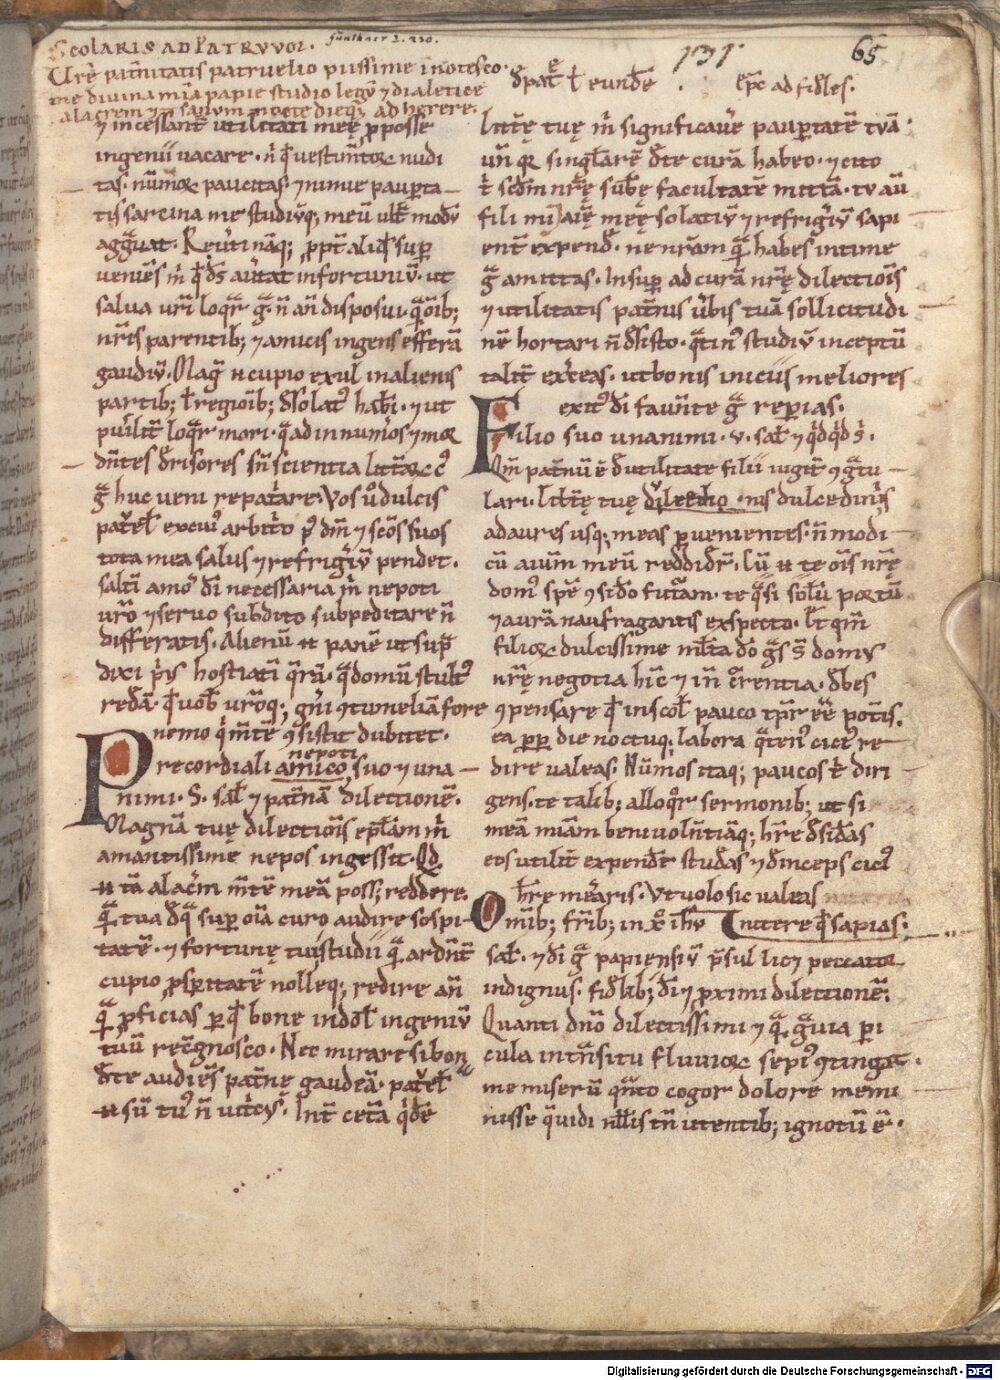 Scolaris ad Patruum.
Vr̄e pat̄nitatis patruelio piissime inotesco.
me diuina mīa papie studio legū ⁊ dialetice
alacrem ⁊ sanum nocte dieq; adherere.
⁊ incessant̄ utilitati meę ꝓposse
ingenii uacare. n̄ uestim̄toꝝ nudi
tas. nūmoꝝ paucitas. ⁊ nimie pauꝑta
tis sarcina me studiūq; meū ult̄ modū
agg̃uat. Reūti nāq; ꝓpt̄ aliq̇ suꝑ
ueniēs m̄ q̇ d̄s aūtat infortuniū. ut
salua ur̄i loq̃r g̃. n̄ an̄ disposui. q̃ oīb;
nr̄is parentib; ⁊ amicis ingens efferā
gaudiū. Mag̃ n̄ cupio exul in alienis
partib; ł regioīb; desolatꝰ hab̄i. ⁊ ut
pūilit̄ loq̃r mori. q̃ ad innum̄os ⁊ mor
dn̄tes d̄risores sn̄ scientia litt̄aꝝ
g̃ huc ueni repat̄are. Vos ů dulcis
pat̄eł ex cuiꝰ arbit̄o p̄ dm̄ ⁊ sc̄os suos
tota mea salus ⁊ refrig̃iū pendet.
salt̄i amōr dī necessaria m̄ nepoti
ur̄o ⁊ seruo subdito subpeditare n̄
differatis. Alienū n̄ panē ut sup̃
dixi p̄ꝰ hostiati q̃rā. q̃ domū stultꝰ
redā. q̇ uob̄ ur̄oq; gn̄i ꝯtumeliā fore
nemo q̇ m̄te ꝯsistit dubitet.
nepoti
Precordiali amico suo ⁊ una
nimi. S. sał ⁊ pat̄nā dilectionē.
Magnā tuę dilectiōis epł̄am m̄
amantissime nepos ingessit. Qđ
n̄ tā alac̄m m̄te meā poss; reddere.
q̃ tua d̄q̃ suꝑ oīa curo audire sospi
tatē. ⁊ fortunę tui studii q̃ ardn̄t
cupio ꝓsꝑitatē nolleq; redire an̄
q̃ ꝓficias ꝑ q̇ bone indoł ingeniū
tuū rec̄gnosco. Nec mirare si bon
d̄te audiēs pat̄ne gaudeā. pat̄eł
n̄ sū tuꝰ n̄ uit̄cꝰ. Int̄ cet̄a q̇dē
131
65
d̄ pat̄ ł eund̄e
Epc̄ ad fid̄les.
litt̄ę tuę m̄ significaūe pauꝑtatē tuā.
un̄ qꝛ sing̃łarē d̄te curā habeo. ⁊ cito
t̄ scd̄m nr̄ę sub̄ę facultatē mittā. tu aū
fili mi aīę męę solatiū ⁊ refrig̃iū sapi
ent̄ expend̄. ne nr̄am q̃ habes intime
g̃ amittas. Insuꝑ ad curā nr̄ę dilectiōis
⁊ utilitatis pat̄nis ūbis tuā sollicitudi
nē hortari n̄ d̄sisto. q̃tinꝰ studiū inceptū
talit̄ ex̄ceas. ut bonis iniciis meliores
exitꝰ dī faun̄te g̃ reꝑias.
Filio suo unanimi. v. sał. ⁊ q̇dq̇d s̄.
Qm̄ pat̄nū ē d̄utilitate filii iugit̄ ꝯg̃tu
lari. litt̄ę tuę dilectio nis dulcedinis
ad aures usq; meas ꝑuenientes. n̄ modi
cū aīum meū reddid̄r. Cū n̄ te oīs nr̄ę
domꝰ spē ꝯsid̄o fut̄am. te q̃si solū portū
⁊ aurā naufragantis exspecto. It̄ qm̄
filioꝝ dulcissime mlt̄a d̄o g̃s s̄ domū
nr̄ę negotia hīc ⁊ in̄ c̄rentia. d̄bes
ꝯpensare q̇ in scoł pauco tp̄r ēe pot̄is.
ea ꝓꝑ die noctuq; labora q̃ten̄ citiꝰ re
dire ualeas. Nūmos itaq; paucos t̄ diri
gens. te talib; alloq̃r sermonib; ut si
meā mīam beniuoln̄tiāq; hr̄e d̄sid̄as
eos utilit̄ expend̄e stud̄as ⁊ d̄inceps citiꝰ
hr̄e mer̄aris. Vt uolo sic ualeas
Omīb; fr̄ib; in xp̄o ih̄u Tuitere q̇ sapias.
sał. ⁊ dī g̃ papiensiū p̄sul lic; peccator
indignus. fid̄lib; dī ⁊ ꝓximi dilectionē.
Quanti dn̄o dilectissimi ⁊ q̃ g̃uia ꝑi
cula in t̄nsitu fluuioꝝ sepiꝰ ꝯtingat.
me miserū qn̄to cogor dolore memi
nisse q̃ uidi nłłis tn̄ utentib; ignotū ē.
Digitalisierung gefördert durch die Deutsche Forschungsgemeinschaft - DFG